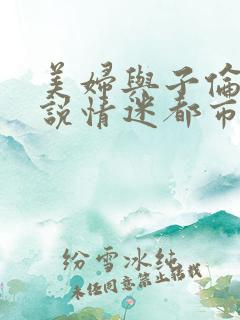 美婦與子倫
說情迷都市
紛雪冰純
未经同意禁止转载